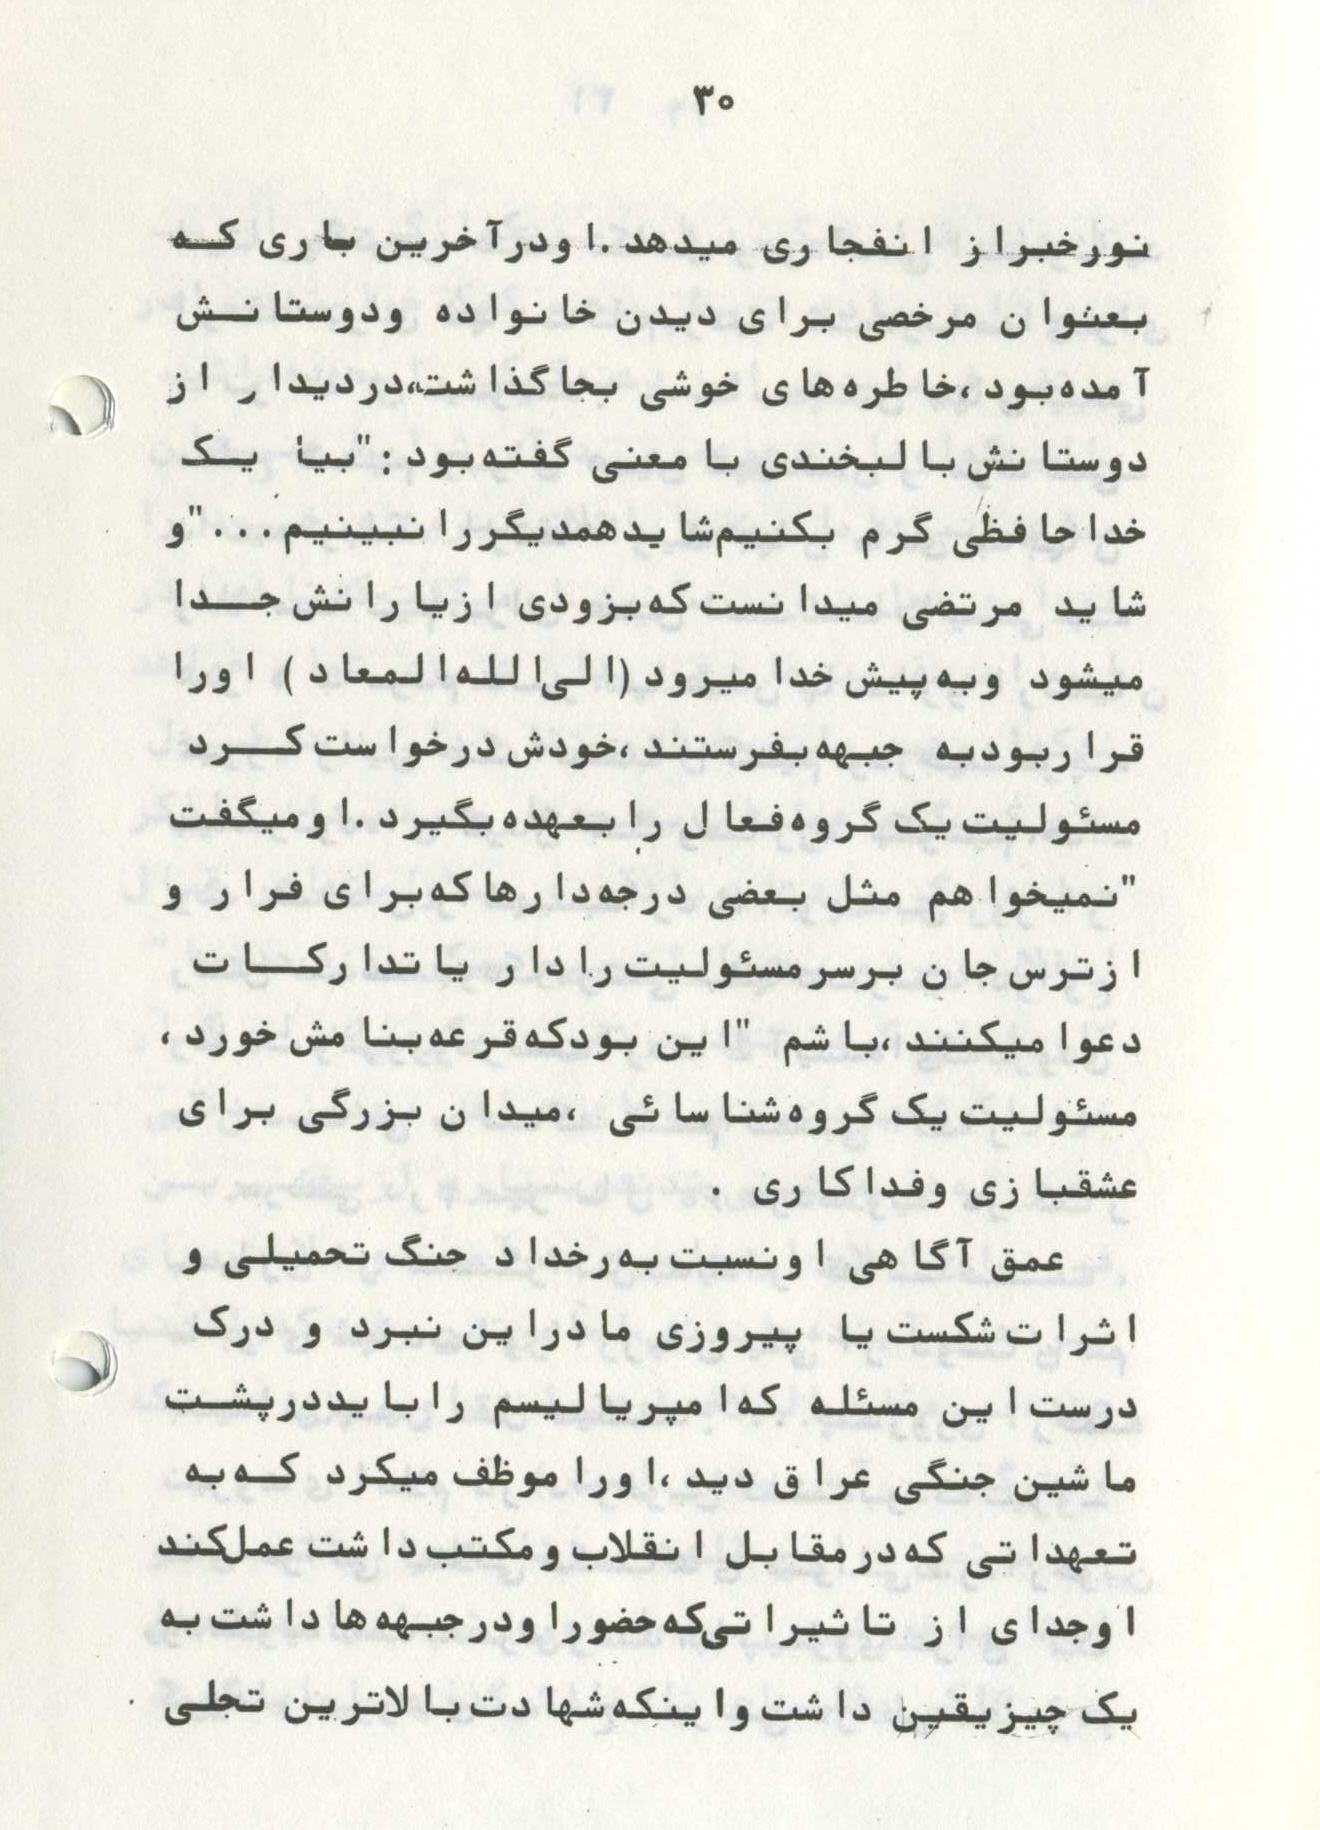 ۳۰
نور خبر از انفجاری میدهد. او در آخرین باری که
بعنوان مرخصی برای دیدن خانواده و دوستانش
آمده بود، خاطره های خوشی بجا گذاشت، در دیدار از
دوستانش با لبخندی با معنی گفته بود: "بیا یک
خداحافظی گرم بکنیم شاید همدیگر را نبینیم..." و
شاید مرتضی میدانست که بزودی از یارانش جدا
میشود و به پیش خدا میرود (الی الله المعاد) او را
قرار بود به جبهه بفرستند، خودش درخواست کرد
مسئولیت یک گروه فعال را بعهده بگیرد. او میگفت
"نمیخواهم مثل بعضی درجه دارها که برای فرار و
از ترس جان بر سر مسئولیت رادار یا تدارکات
دعوا میکنند، باشم" این بود که قرعه بنامش خورد،
مسئولیت یک گروه شناسائی، میدان بزرگی برای
عشقبازی و فداکاری.
عمق آگاهی او نسبت به رخداد جنگ تحمیلی و
اثرات شکست یا پیروزی ما در این نبرد و درک
درست این مسئله که امپریالیسم را باید در پشت
ماشین جنگی عراق دید، او را موظف میکرد که به
تعهداتی که در مقابل انقلاب و مکتب داشت عمل کند
او جدای از تاثیراتی که حضور او در جبهه ها داشت به
یک چیز یقین داشت و اینکه شهادت بالاترین تجلی